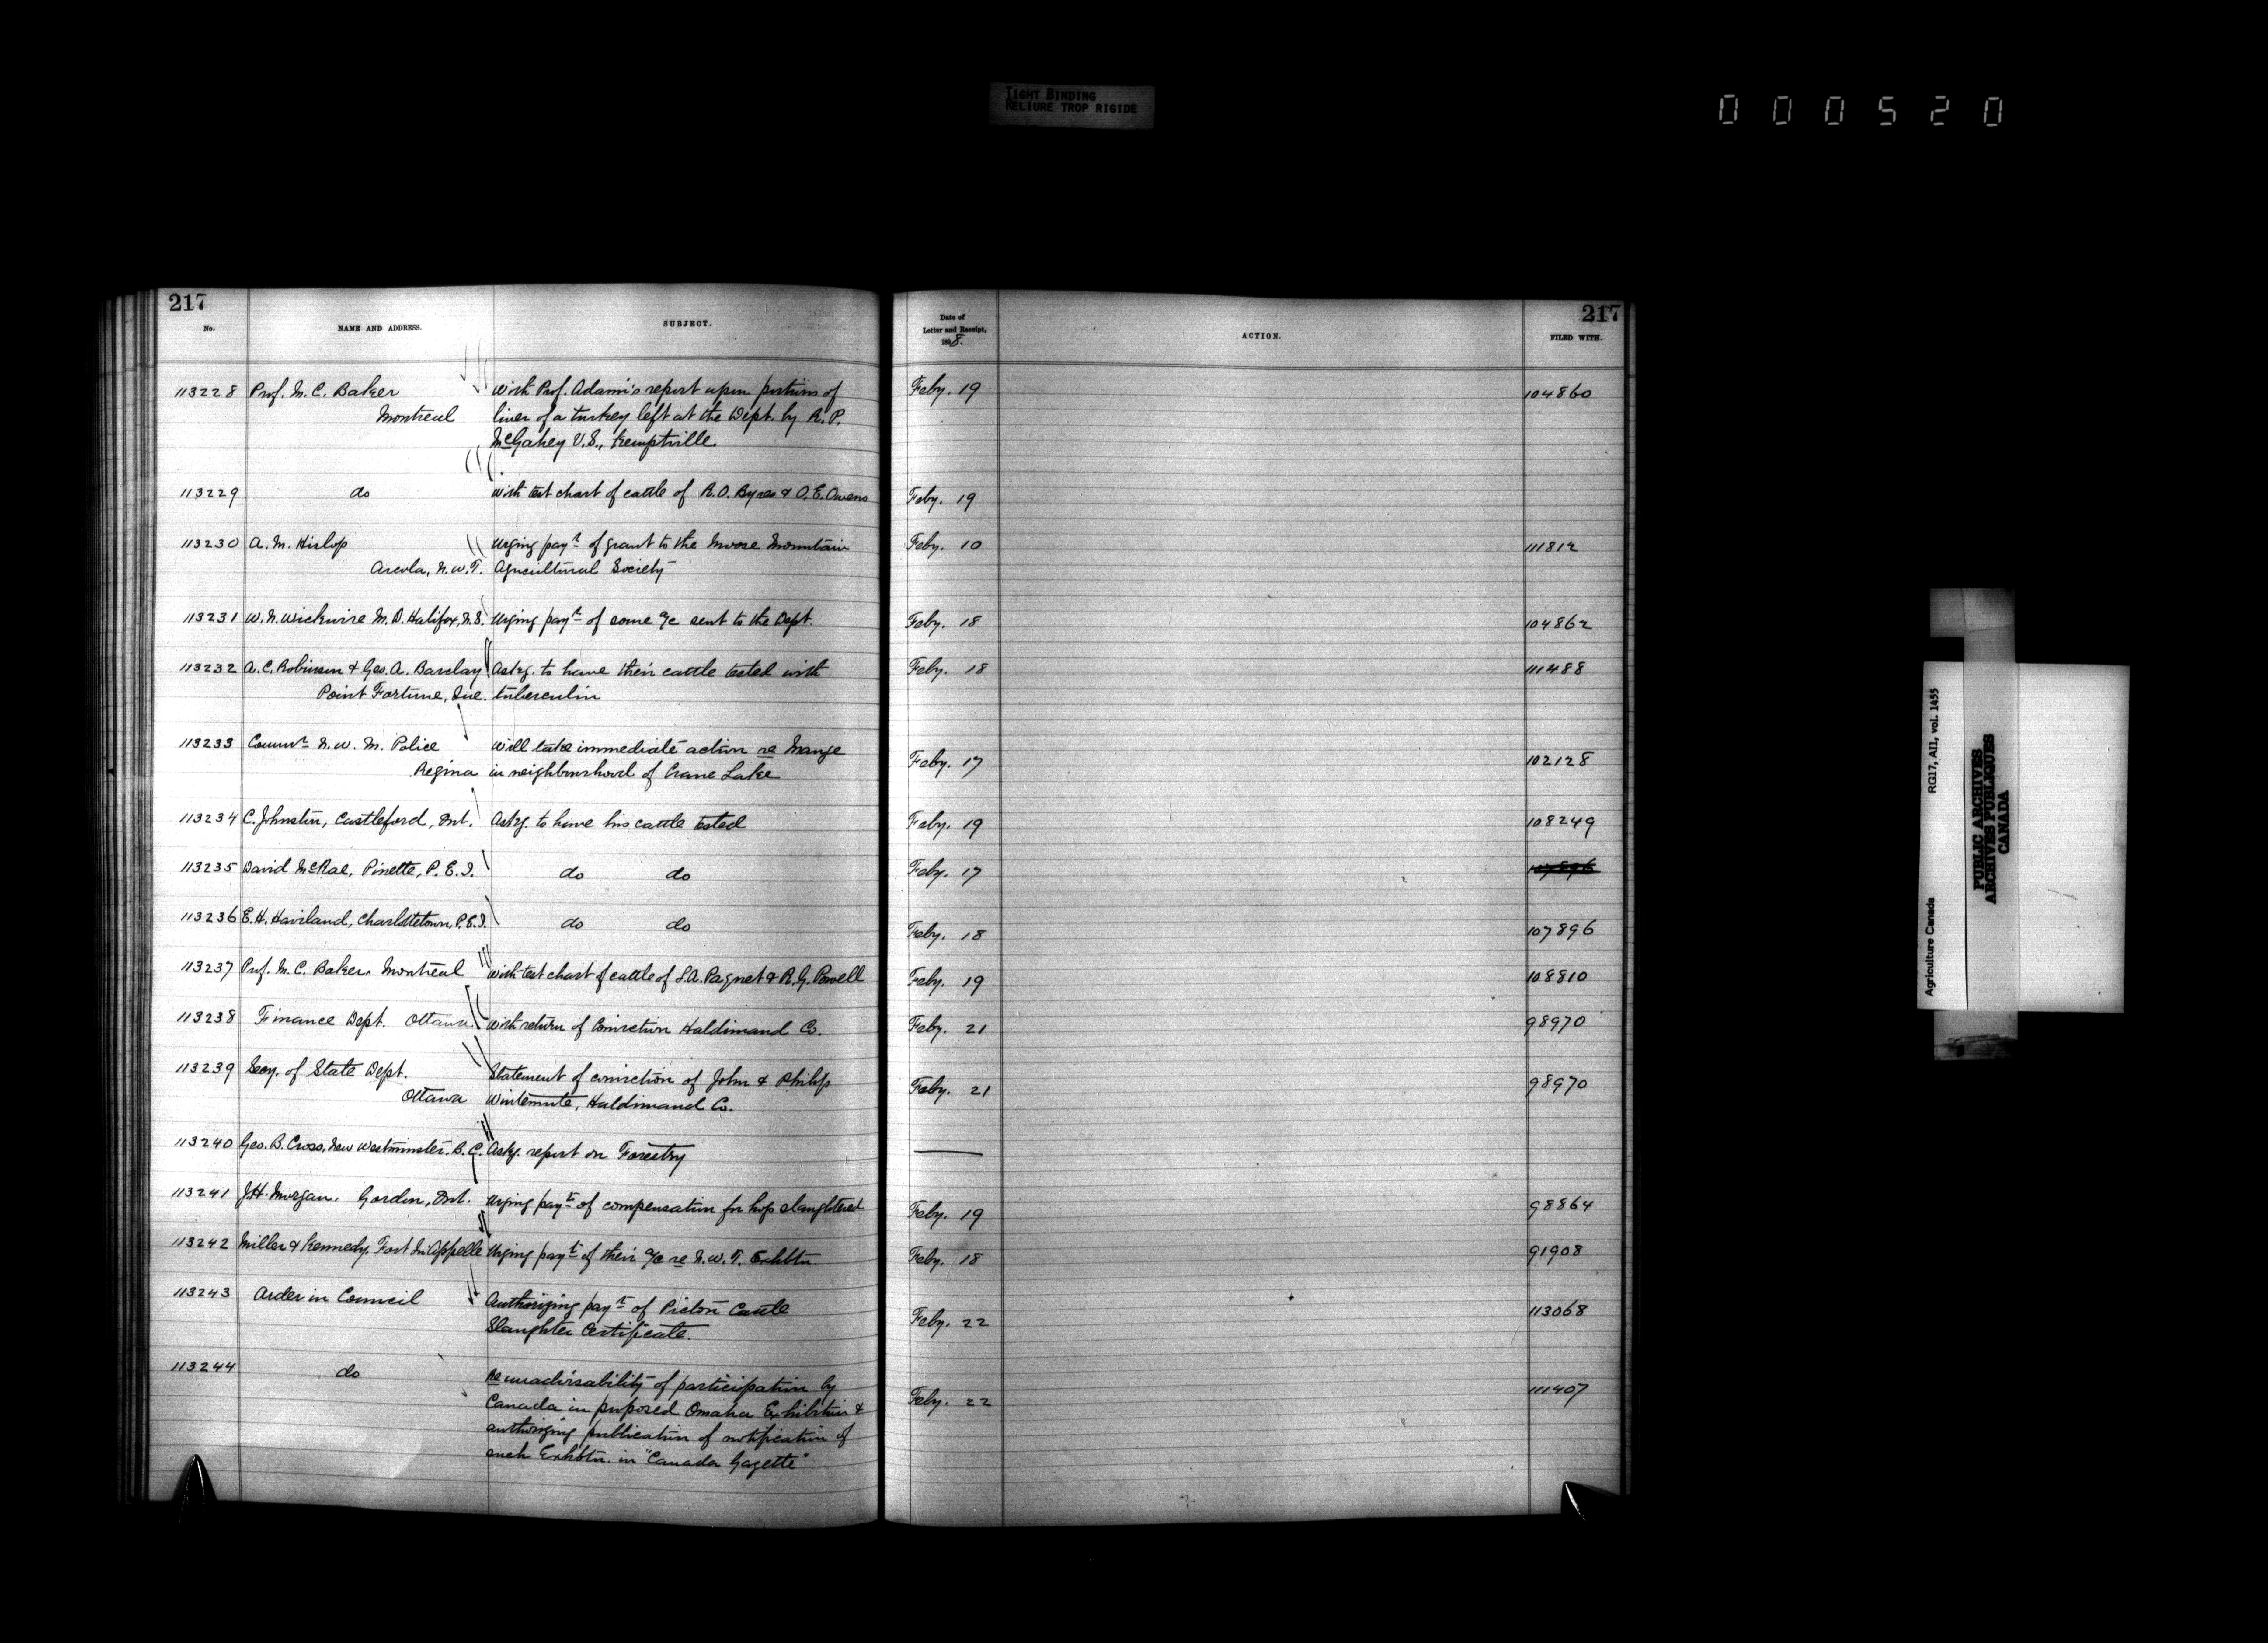 TIGHT BINDING
RELIURE TROP RIGIDE
000520
217
No.
NAME AND ADDRESS.
SUBJECT.
Date of
Letter and Receipt,
1898.
ACTION.
217
FILED WITH.
113228 Prof. M. C. Baker With Prof. Adami's report upon portions of Feby. 19 104860
Montreal liver of a turkey left at the Dept. by R. P.
McGahey V.S., Kemptville
113229 do With test chart of cattle of R. O. Byres & O. E. Owens Feby. 19
113230 A. M. Hislop Urging payt of grant to the Moose Mountain Feby. 10 111812
Arcola, N.W.T. Agricultural Society
113231 W. N. Wickwire M.D. Halifax, N.S. Urging payt of some a/c sent to the Dept. Feby. 18 104862
113232 A. C. Robinson & Geo. A. Barclay Askg. to have their cattle tested with Feby. 18 111488
Point Fortune, Que. tuberculin
113233 Commr N. W. M. Police Will take immediate action re Mange Feby. 17 102128
Regina in neighbourhood of Crane Lake
113234 C. Johnston, Castleford, Ont. Askg. to have his cattle tested Feby. 19 108249
113235 David McRae, Pinette, P.E.I. do do Feby. 17
113236 E. H. Haviland, Charlottetown, P.E.I. do do Feby. 18 107896
113237 Prof. M. C. Baker. Montreal With test chart of cattle of S. A. Pagnet & R. G. Powell Feby. 19 108810
113238 Finance Dept. Ottawa. With return of Conviction Haldimand Co. Feby. 21 98970
113239 Secy. of State Dept. Statement of conviction of John & Philip Feby. 21 98970
Ottawa Wintemute, Haldimand Co.
113240 Geo. B. Cross, New Westminster. B.C. Askg. report on Forestry
113241 J. H. Morgan. Gordon, Ont. Urging payt of compensation for hogs slaughtered Feby. 19 98864
113242 Miller & Kennedy, Fort Qu'Appelle Urging payt of their a/c re N.W.T. Exhbtn. Feby. 18 91908
113243 Order in Council Authorizing payt of Picton Cattle Feby. 22 113068
Slaughter Certificate.
113244 do Re unadvisability of participation by Feby. 22 111407
Canada in proposed Omaha Exhibition &
authorizing publication of notification of
such Exhbtn. in "Canada Gazette"
Agriculture Canada RG17, AII, vol. 1455
PUBLIC ARCHIVES
ARCHIVES PUBLIQUES
CANADA